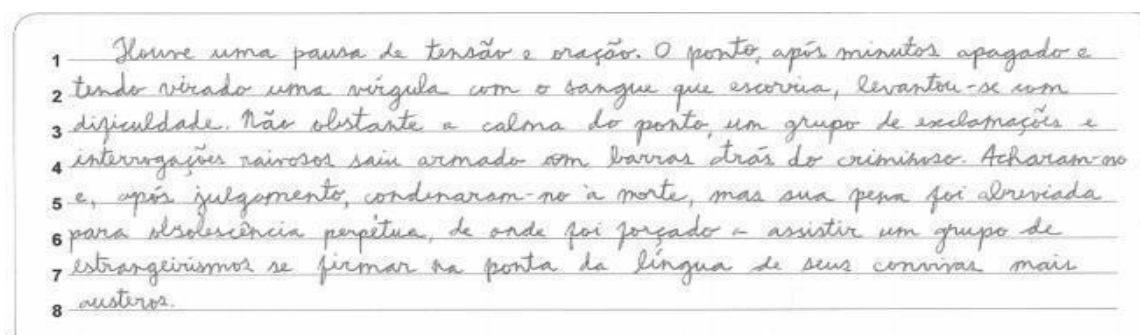 1 Houve uma pausa de tensão e oração. O ponto, após minutos apagado e
2 tendo virado uma vírgula com o sangue que escorria, levantou-se com
3 dificuldade. Não obstante a calma do ponto, um grupo de exclamações e
4 interrogações raivosos saiu armado com barras atrás do criminoso. Acharam-no
5 e, após julgamento, condenaram-no à morte, mas sua pena foi abreviada
6 para obsolescência perpétua, de onde foi forçado a assistir um grupo de
7 estrangeirismos se firmar na ponta da língua de seus convivas mais
8 austeros.